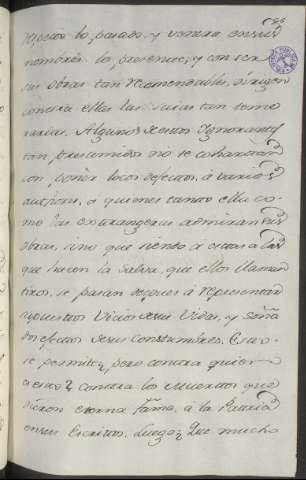 lo pasado, y venera en sus
nombres, lo presente, y con ser
sus obras tan recomendables, dirigen
contra ellas las suias tan teme
rarias. Algunos de estos Ignorantes
tan presumidos no se
con poner locos defectos, á varios
autores, a quienes tanto ellas co
mo las extrangeras admiran sus
obras, sino que siendo á estos á los
que hacen la Salva, que ellos llaman
tiros, se pasan despues á representar
Vicios de sus Vidas, y
defectos de sus costumbres. Esto
se permite? pero contra quien
es esto? contra los muertos que
dieron eterna fama, á la Patria
en sus Escritos. Luego? Que mucho